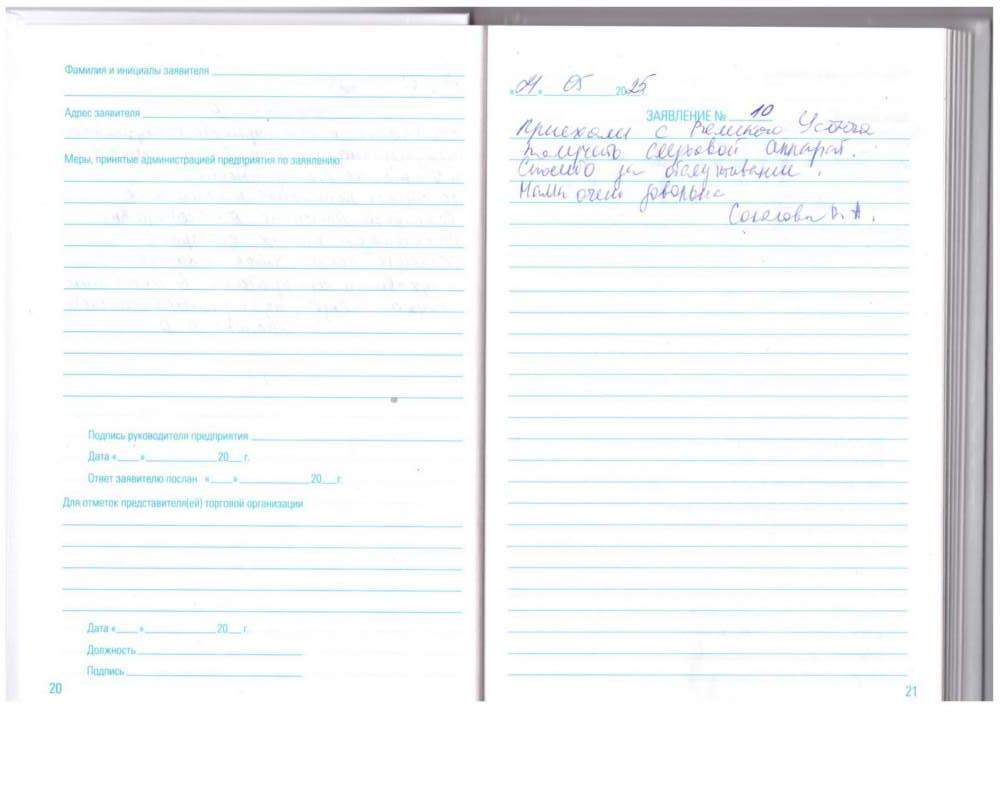 Фамилия и инициалы заявителя
Адрес заявителя
Меры, принятые администрацией предприятия по заявлению:
Подпись руководителя предприятия
Дата «___»___________20___г.
Ответ заявителю послан «___»___________20___г
Для отметок представителя(ей) торговой организации
Дата «___»___________20___г.
Должность
Подпись
20
05 2025
ЗАЯВЛЕНИЕ № 10
Приехали с Великого Устюга
получить слуховой аппарат.
Спасибо за обслуживание.
Мама очень довольна
21